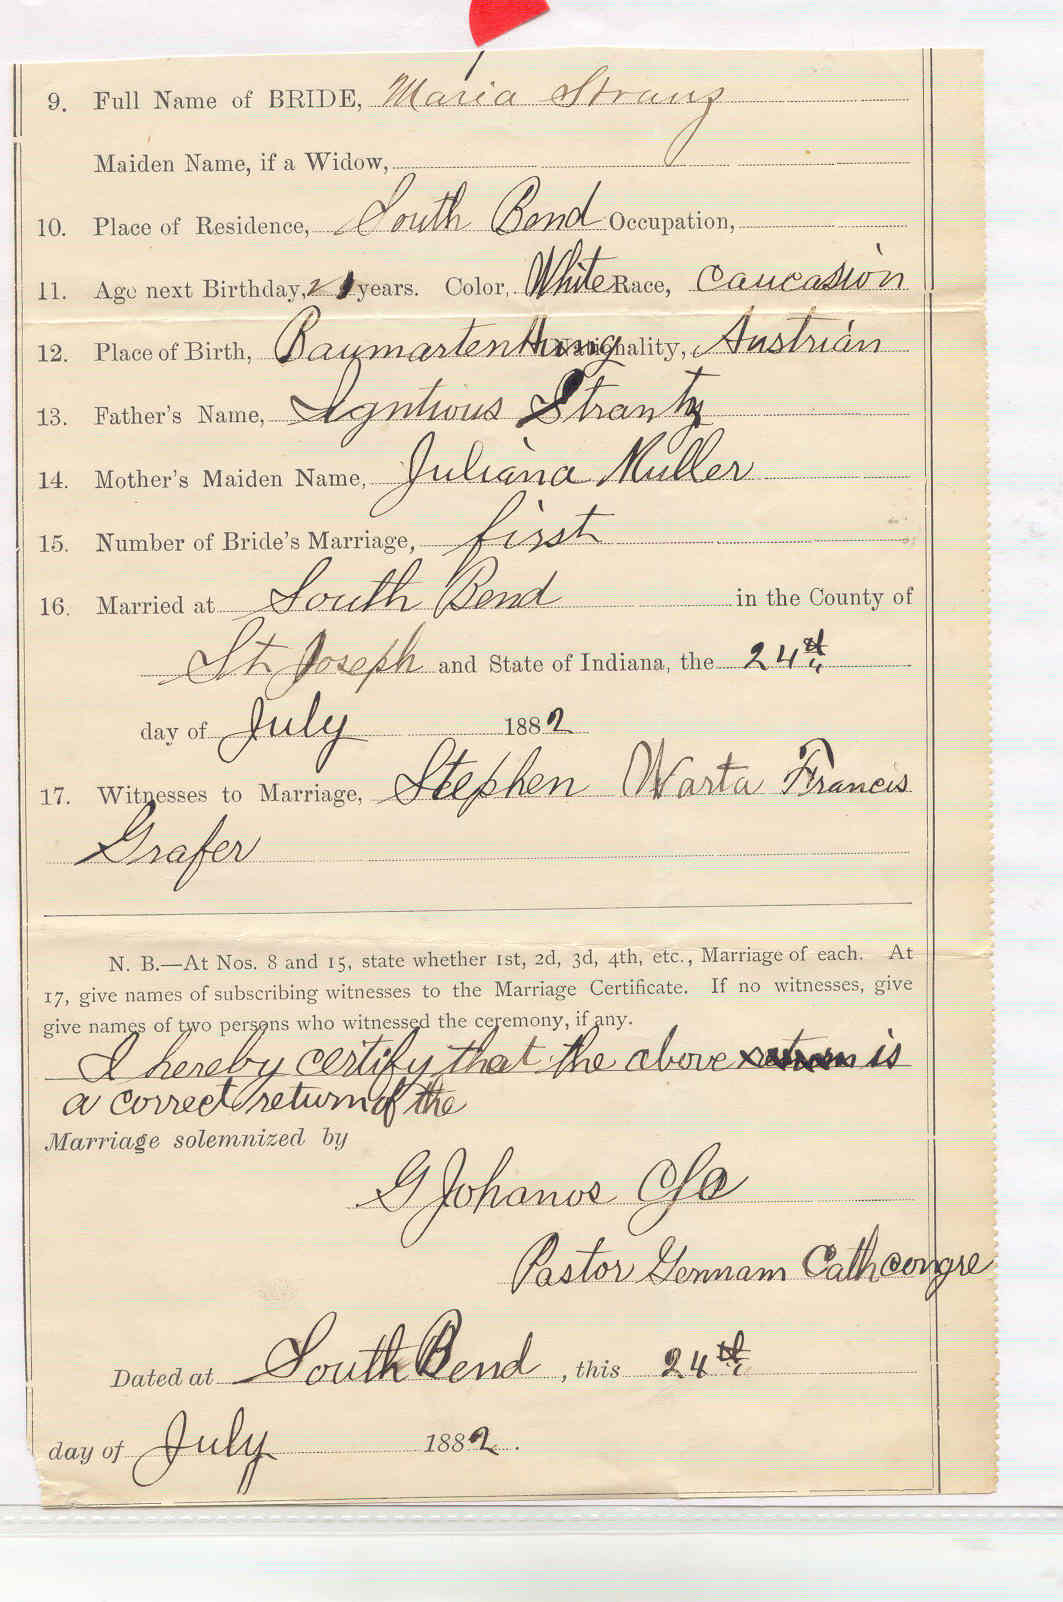 9. Full Name of BRIDE, Maria Stranz
Maiden Name, if a Widow,
10. Place of Residence, South Bend Occupation,
11. Age next Birthday, 21 years. Color, White Race, Caucasion
12. Place of Birth, Baumarten Hung Nationality, Austrian
13. Father's Name, Igntious Strantz
14. Mother's Maiden Name, Juliana Muller
15. Number of Bride's Marriage, first
16. Married at South Bend in the County of
St Joseph and State of Indiana, the 24th
day of July 1882
17. Witnesses to Marriage, Stephen Warta Francis
Grafer
N. B.—At Nos. 8 and 15, state whether 1st, 2d, 3d, 4th, etc., Marriage of each. At
17, give names of subscribing witnesses to the Marriage Certificate. If no witnesses, give
give names of two persons who witnessed the ceremony, if any.
I hereby certify that the above is
a correct return of the
Marriage solemnized by
G Johanos
Pastor Gennam Cath congre
Dated at South Bend, this 24th
day of July 1882.